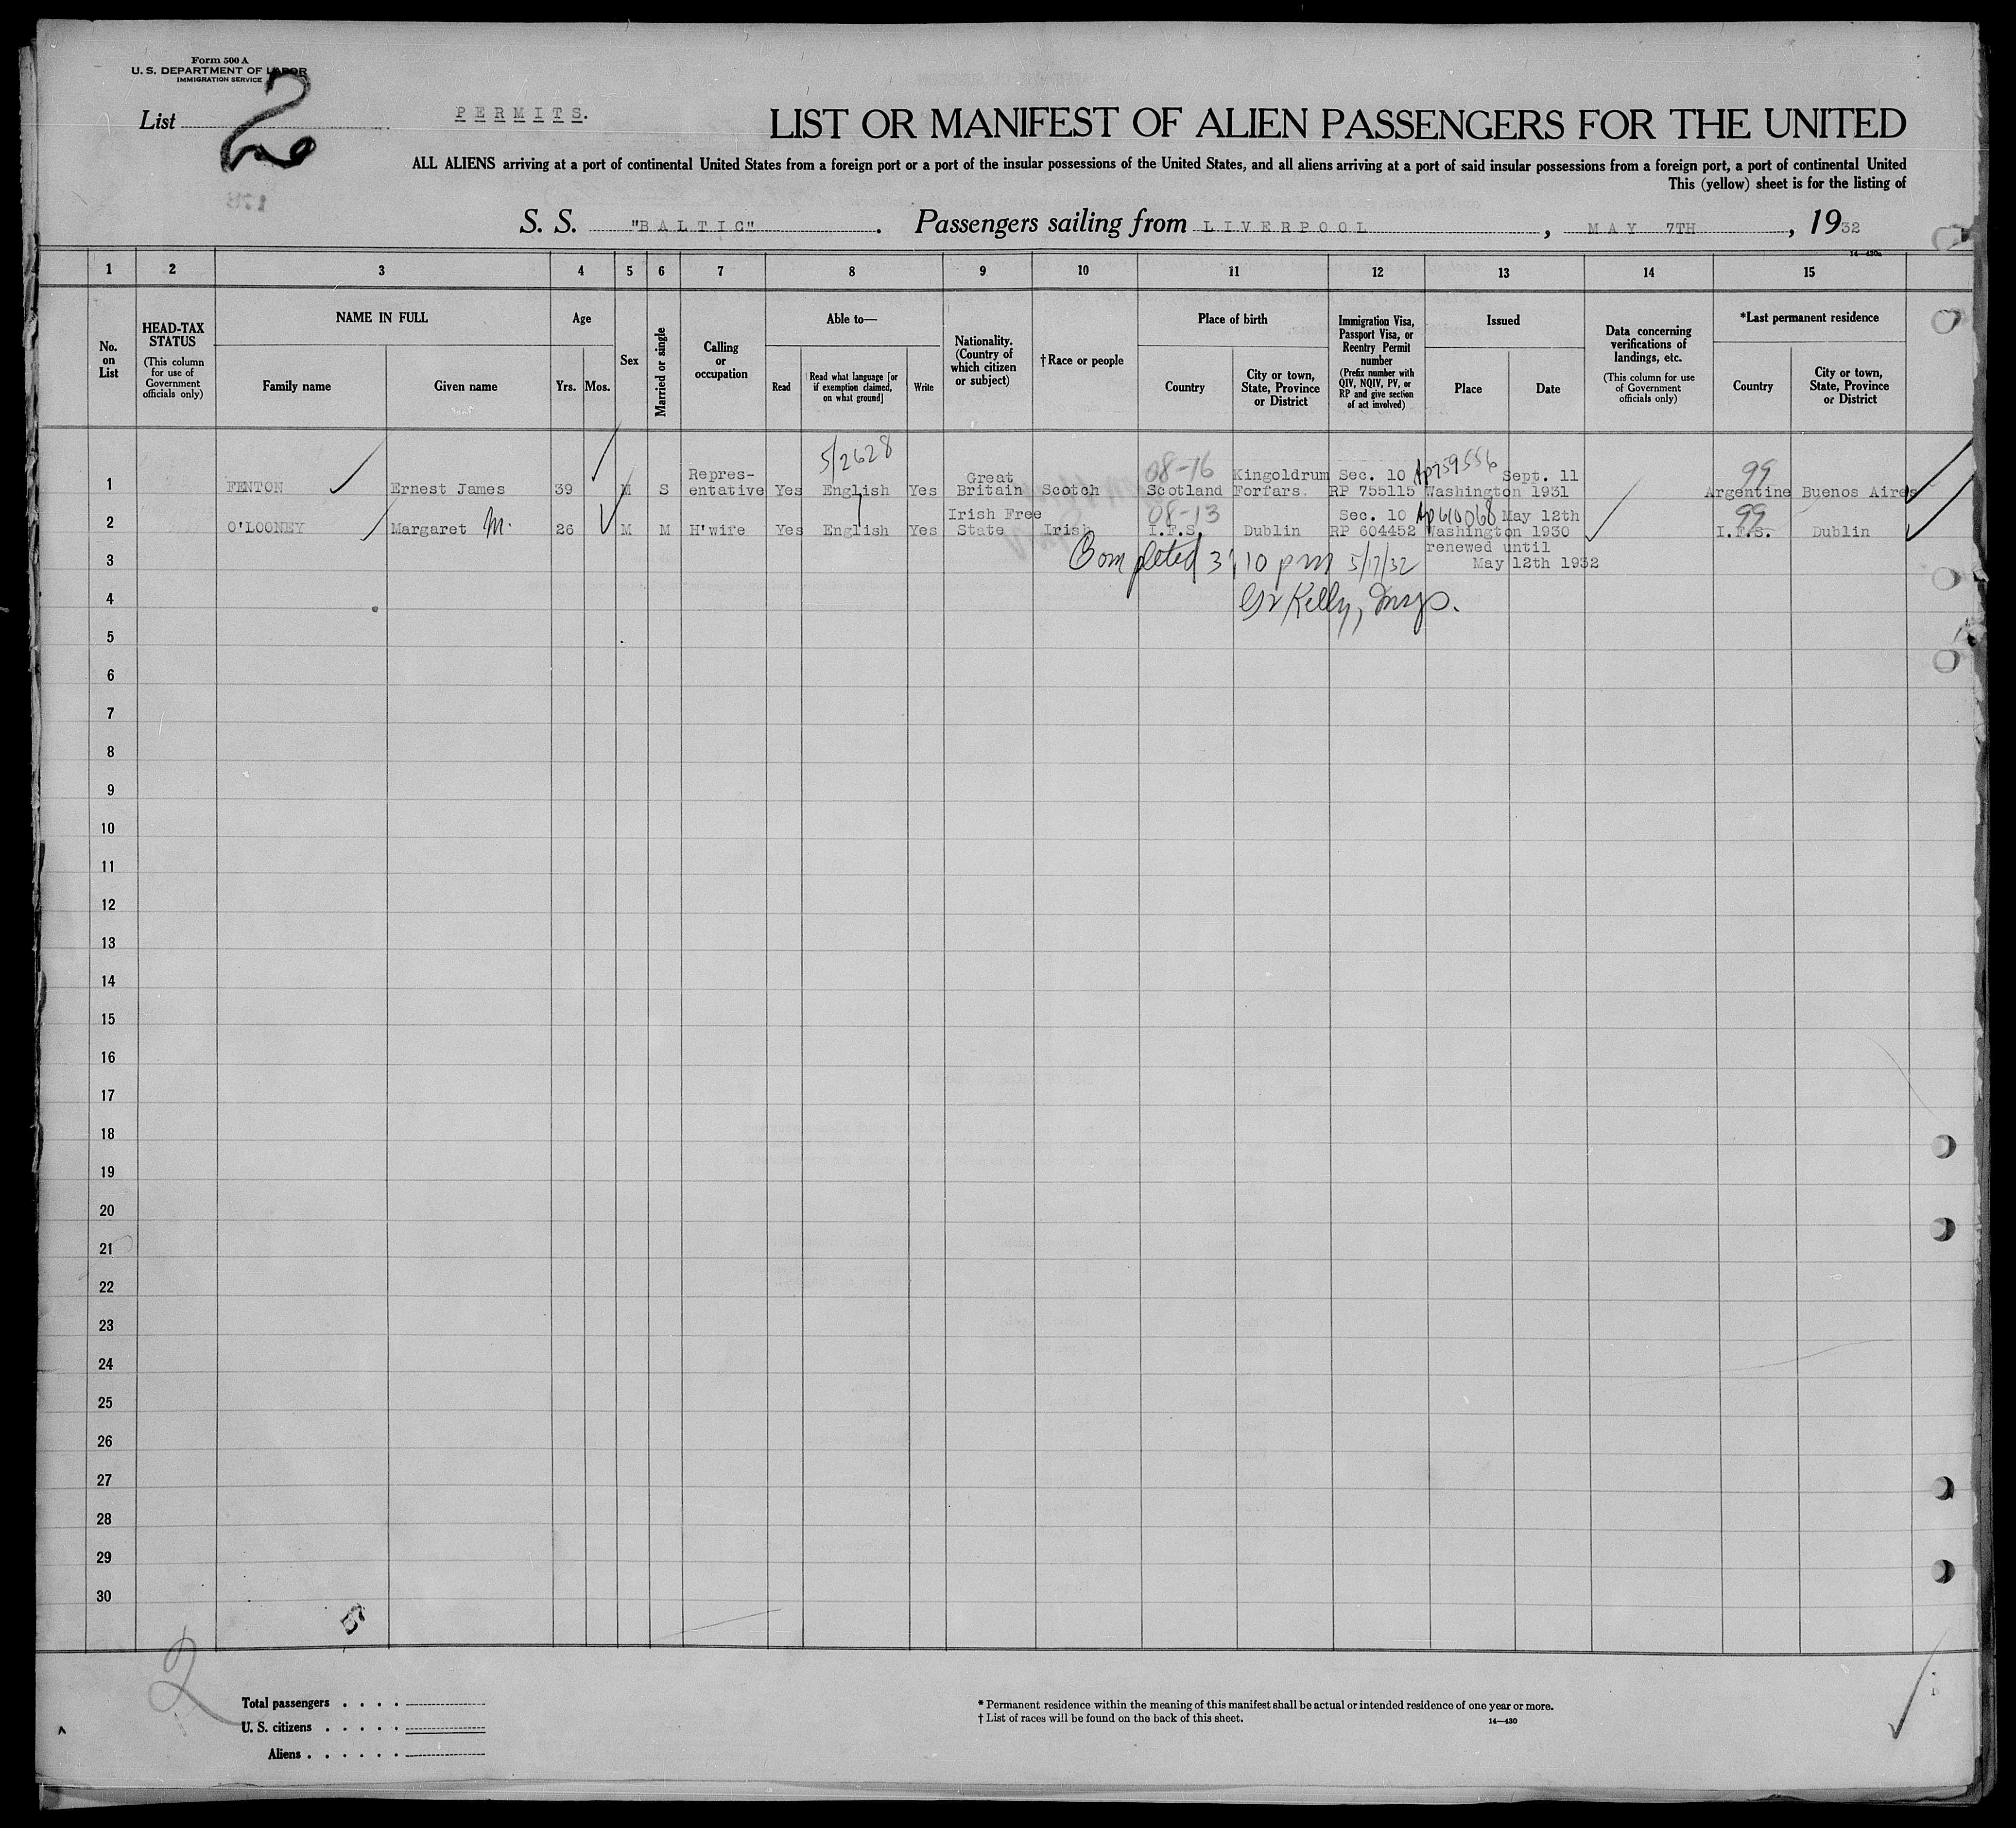 Form 500 A
U. S. DEPARTMENT OF LABOR
IMMIGRATION SERVICE
List 2
PERMITS.
LIST OR MANIFEST OF ALIEN PASSENGERS FOR THE UNITED
ALL ALIENS arriving at a port of continental United States from a foreign port or a port of the insular possessions of the United States, and all aliens arriving at a port of said insular possessions from a foreign port, a port of continental United
This (yellow) sheet is for the listing of
S. S. "BALTIC". Passengers sailing from LIVERPOOL, MAY 7TH, 1932
14—430a
1 2 3 4 5 6 7 8 9 10 11 12 13 14 15
No. on List
HEAD-TAX STATUS
(This column for use of Government officials only)
NAME IN FULL
Family name
Given name
Age
Yrs.
Mos.
Sex
Married or single
Calling or occupation
Able to—
Read
Read what language [or if exemption claimed, on what ground]
Write
Nationality. (Country of which citizen or subject)
†Race or people
Place of birth
Country
City or town, State, Province or District
Immigration Visa, Passport Visa, or Reentry Permit number
(Prefix number with QIV, NQIV, PV, or RP and give section of act involved)
Issued
Place
Date
Data concerning verifications of landings, etc.
(This column for use of Government officials only)
*Last permanent residence
Country
City or town, State, Province or District
5/2628
Repres- Great 08-16 Kingoldrum Sec. 10 Ap759556 Sept. 11 99
1 FENTON Ernest James 39 M S entative Yes English Yes Britain Scotch Scotland Forfars. RP 755115 Washington 1931 Argentine Buenos Aires
Irish Free 08-13 Sec. 10 Ap610068 May 12th 99
2 O'LOONEY Margaret M. 26 M M H'wife Yes English Yes State Irish I.F.S. Dublin RP 604452 Washington 1930 I.F.S. Dublin
renewed until
3 Completed 3:10 pm 5/17/32 May 12th 1932
4 Kelly, Insp.
5
6
7
8
9
10
11
12
13
14
15
16
17
18
19
20
21
22
23
24
25
26
27
28
29
30
2
Total passengers . . . .
U. S. citizens . . . . .
Aliens . . . . . .
* Permanent residence within the meaning of this manifest shall be actual or intended residence of one year or more.
† List of races will be found on the back of this sheet.
14—430